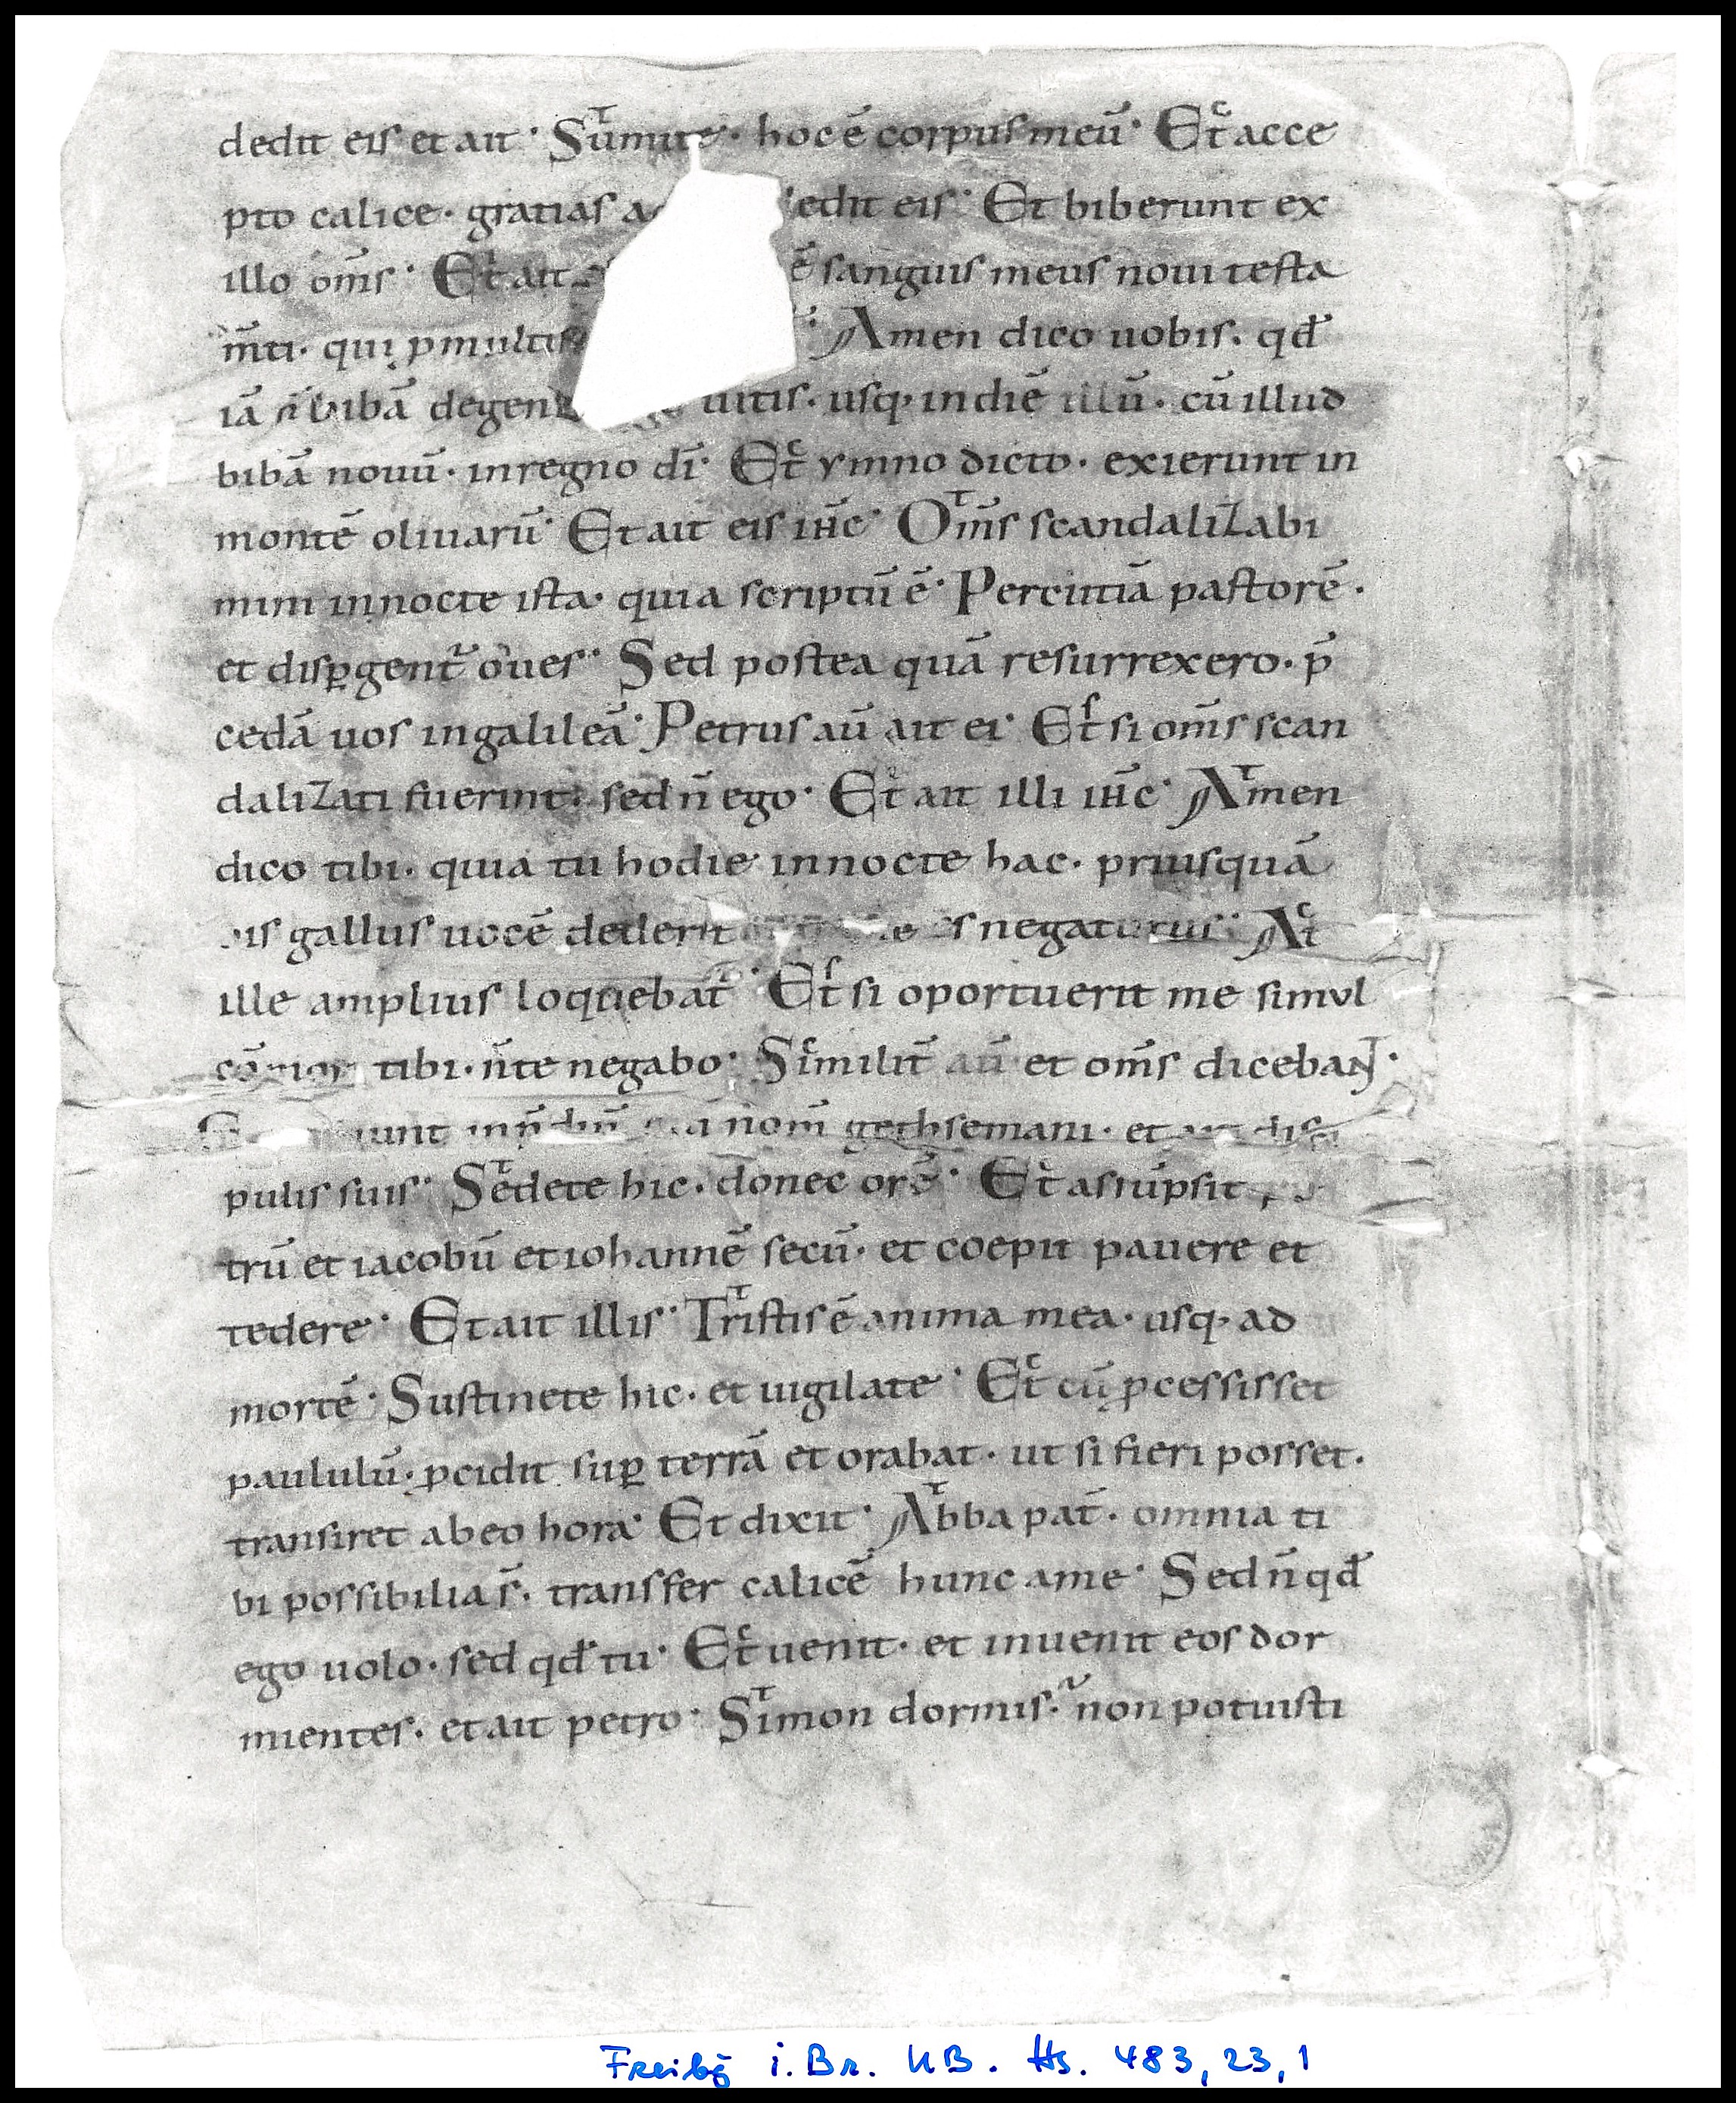 dedit eis et ait· Sūmite· hoc ē corpus meū· Et acce
pto calice· gratias edit eis· Et biberunt ex
illo om̄s· Et ait ē sanguis meus noui testa
m̄ti· qui p multis Amen dico uobis· qđ
iā n̄ bibā de uitis· usq· in diē illū· cū illud
bibā nouū· in regno dī· Et ymno dicto· exierunt in
montē oliuarū· Et ait eis ih̄c· Om̄s scandaliZabi
mini in nocte ista· quia scriptū ē· Percutiā pastorē·
et dispgent̄ oues· Sed postea quā resurrexero· p̄
cedā uos in galileā· Petrus aū ait ei· Et si om̄s scan
daliZati fuerint· sed n̄ ego· Et ait illi ih̄c· Amen
dico tibi· quia tu hodie in nocte hac· priusquā
gallus uocē dederit negaturus· At
ille amplius loquebat̄· Et si oportuerit me simul
tibi· n̄ te negabo· Similit̄ aū et om̄s dicebant·
nom̄ gethsemani· et
pulis suis· Sedete hic· donec orē· Et assūpsit
trū et iacobū et iohannē secū· et coepit pauere et
tedere· Et ait illis· Tristis ē anima mea· usq· ad
mortē· Sustinete hic· et uigilate· Et cū pcessisset
paululū· pcidit sup terrā et orabat· ut si fieri posset·
transiret ab eo hora· Et dixit· Abba pat̄· omnia ti
bi possibilia s̄· transfer calicē hunc a me· Sed n̄ qđ
ego uolo· sed qđ tu· Et uenit· et inuenit eos dor
mientes· et ait petro· Simon dormis· non potuisti
Freibg i. Br. UB. Hs. 483, 23, 1